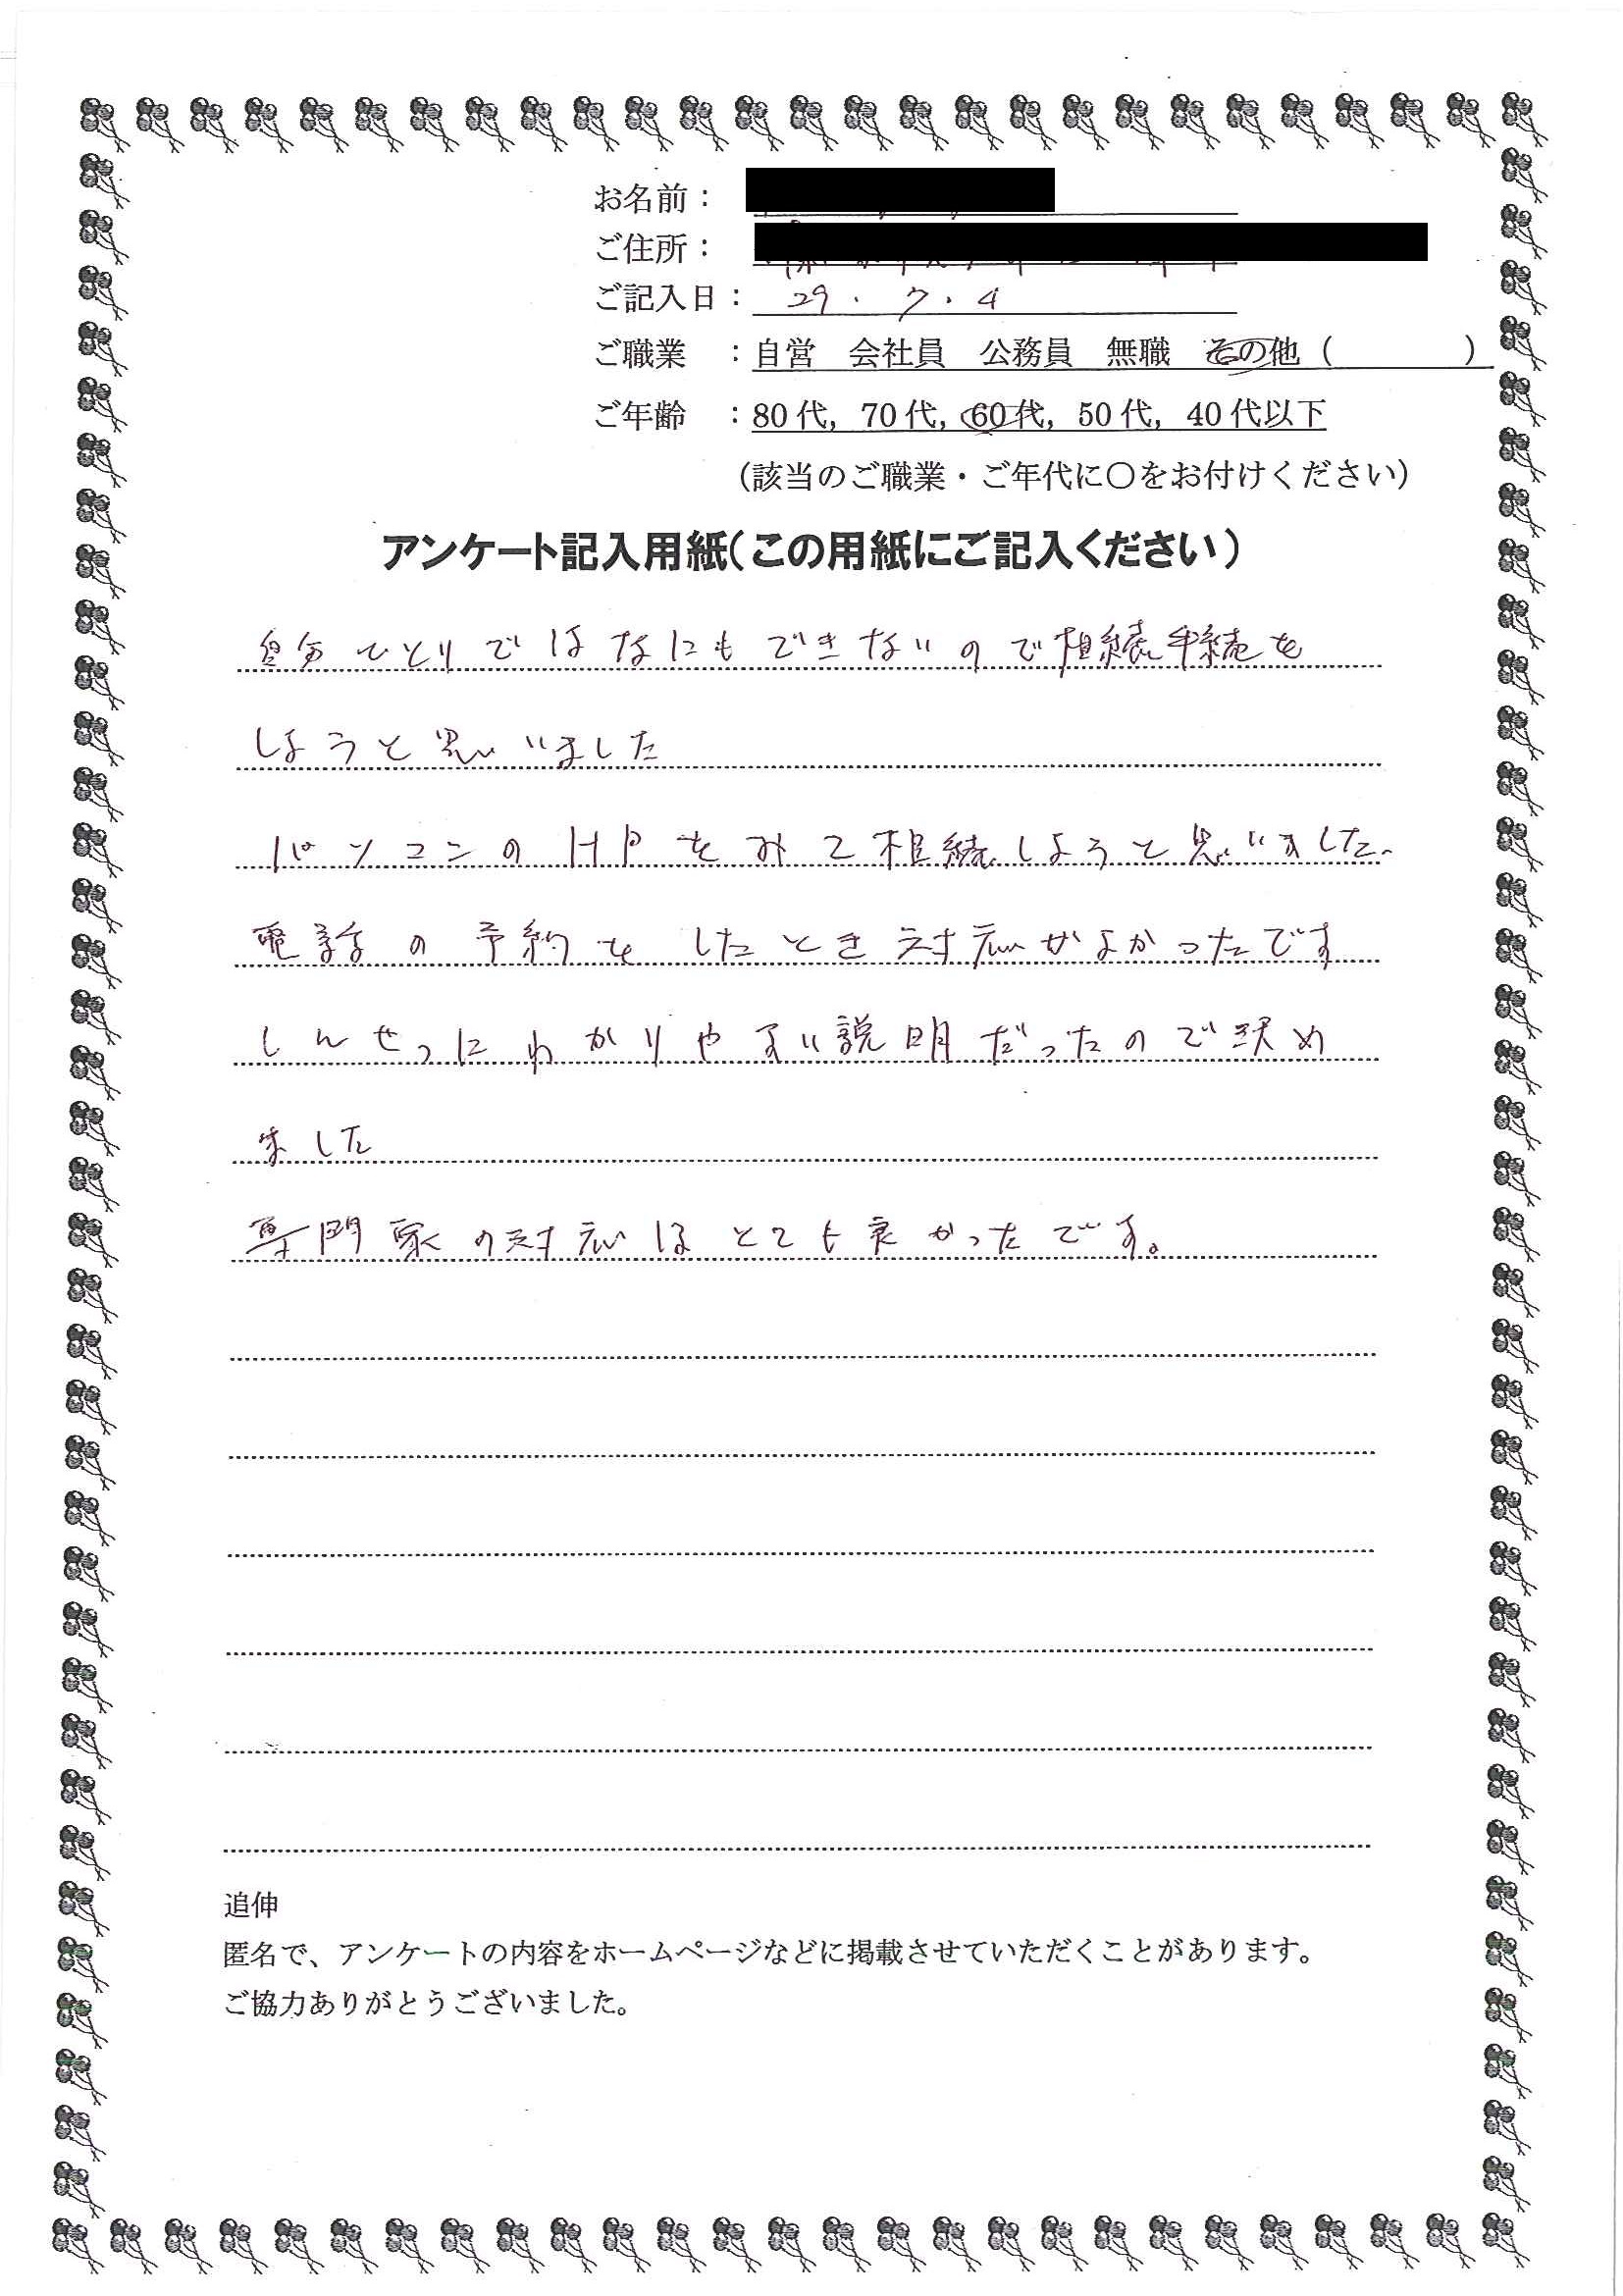 お名前：
ご住所：
ご記入日： 29．7．4
ご職業　：自営　会社員　公務員　無職　その他（　　　　）
ご年齢　：80代，70代，60代，50代，40代以下
（該当のご職業・ご年代に〇をお付けください）
アンケート記入用紙（この用紙にご記入ください）
自分ひとりではなにもできないので相続手続を
しようと思いました
パソコンのHPをみて相続しようと思いました、
電話の予約をしたとき対応がよかったです
しんせつにわかりやすい説明だったので決め
ました
専門家の対応はとても良かったです。
追伸
匿名で、アンケートの内容をホームページなどに掲載させていただくことがあります。
ご協力ありがとうございました。